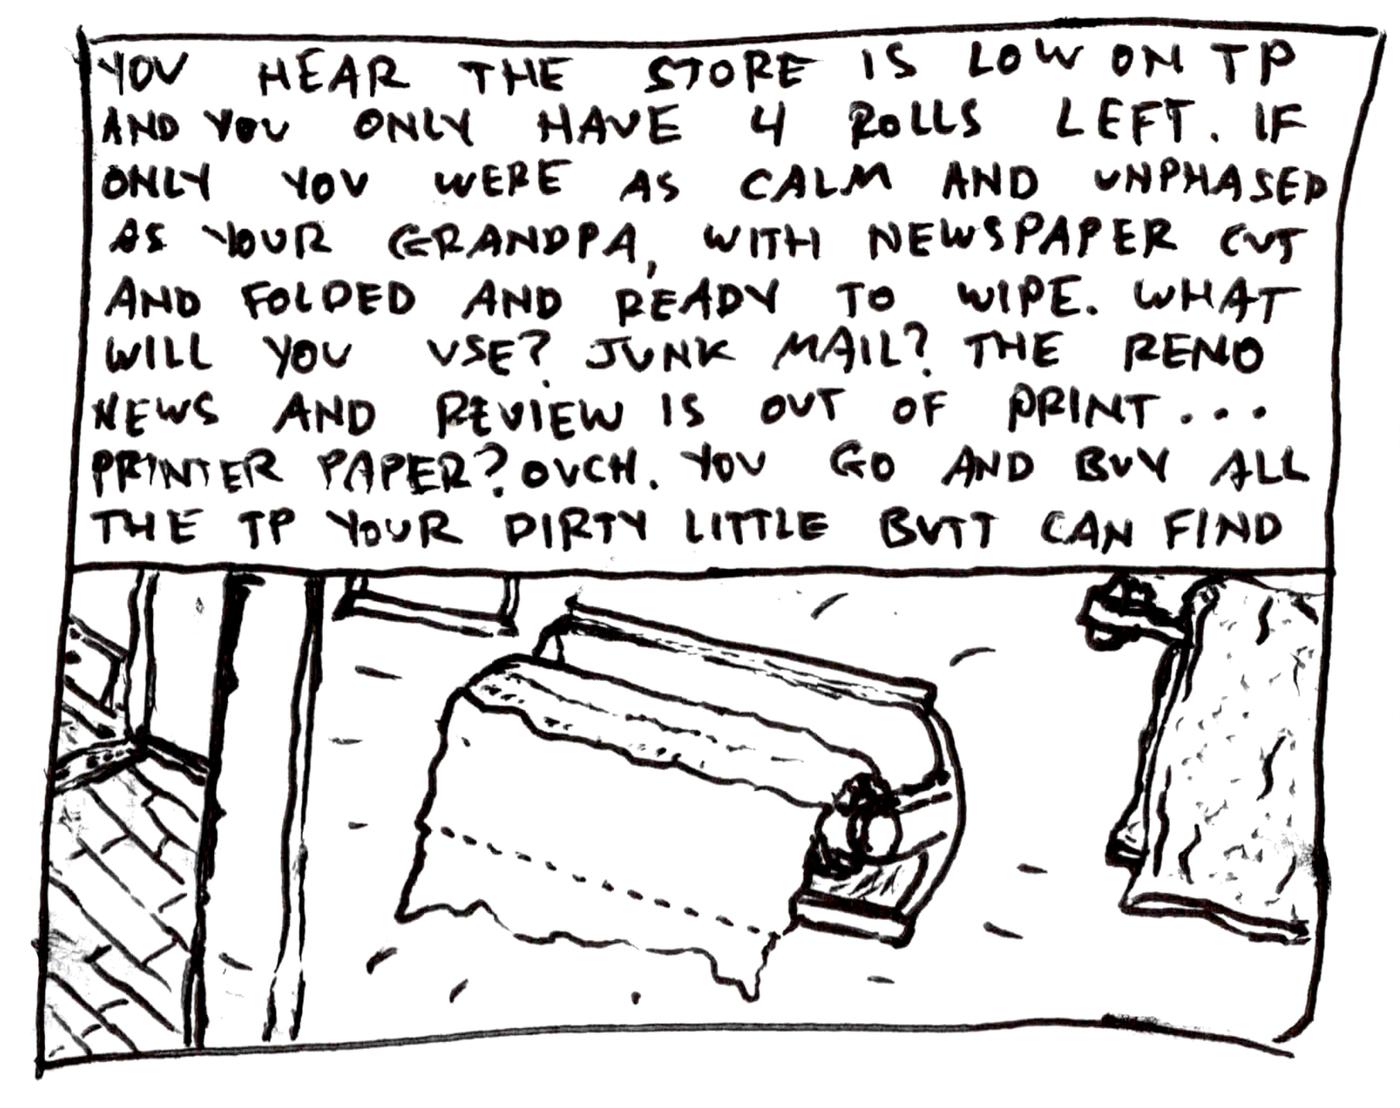 YOU HEAR THE STORE IS LOW ON TP
AND YOU ONLY HAVE 4 ROLLS LEFT. IF
ONLY YOU WERE AS CALM AND UNPHASED
AS YOUR GRANDPA, WITH NEWSPAPER CUT
AND FOLDED AND READY TO WIPE. WHAT
WILL YOU USE? JUNK MAIL? THE RENO
NEWS AND REVIEW IS OUT OF PRINT...
PRINTER PAPER? OUCH. YOU GO AND BUY ALL
THE TP YOUR DIRTY LITTLE BUTT CAN FIND